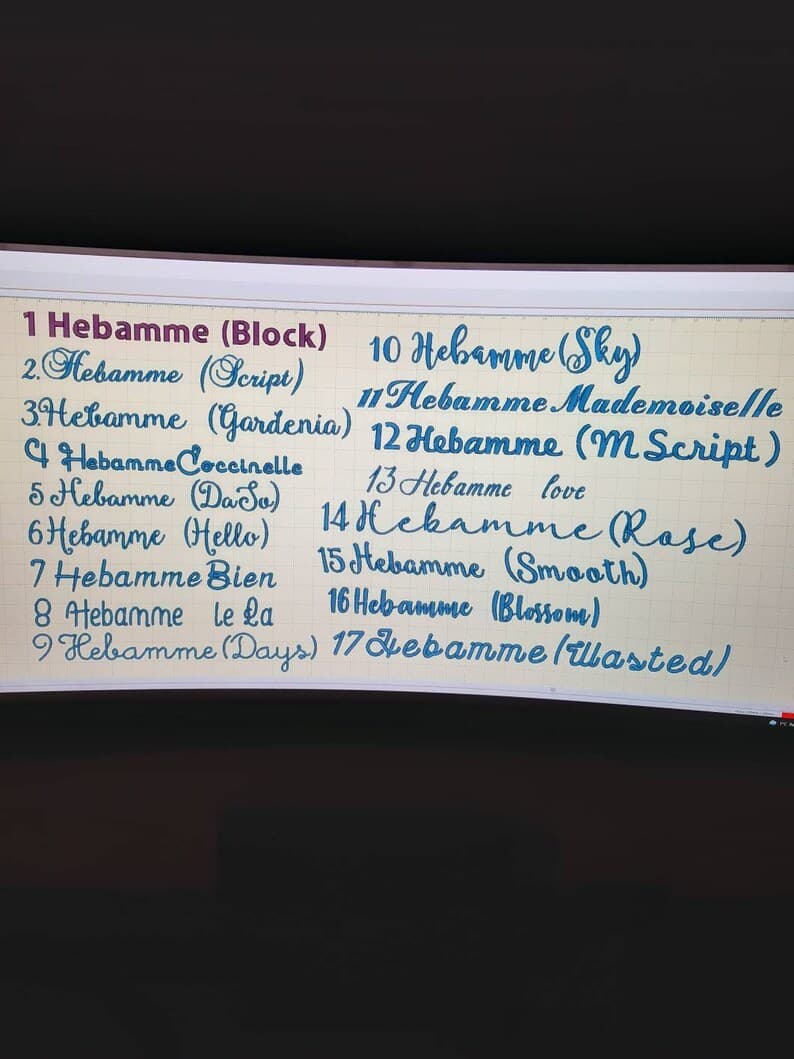 1 Hebamme (Block)
2. Hebamme (Script)
3. Hebamme (Gardenia)
4 Hebamme Coccinelle
5 Hebamme (DaSo)
6 Hebamme (Hello)
7 Hebamme Bien
8 Hebamme le La
9 Hebamme (Days)
10 Hebamme (Sky)
11 Hebamme Mademoiselle
12 Hebamme (M Script)
13 Hebamme love
14 Hebamme (Rose)
15 Hebamme (Smooth)
16 Hebamme (Blossom)
17 Hebamme (Wasted)